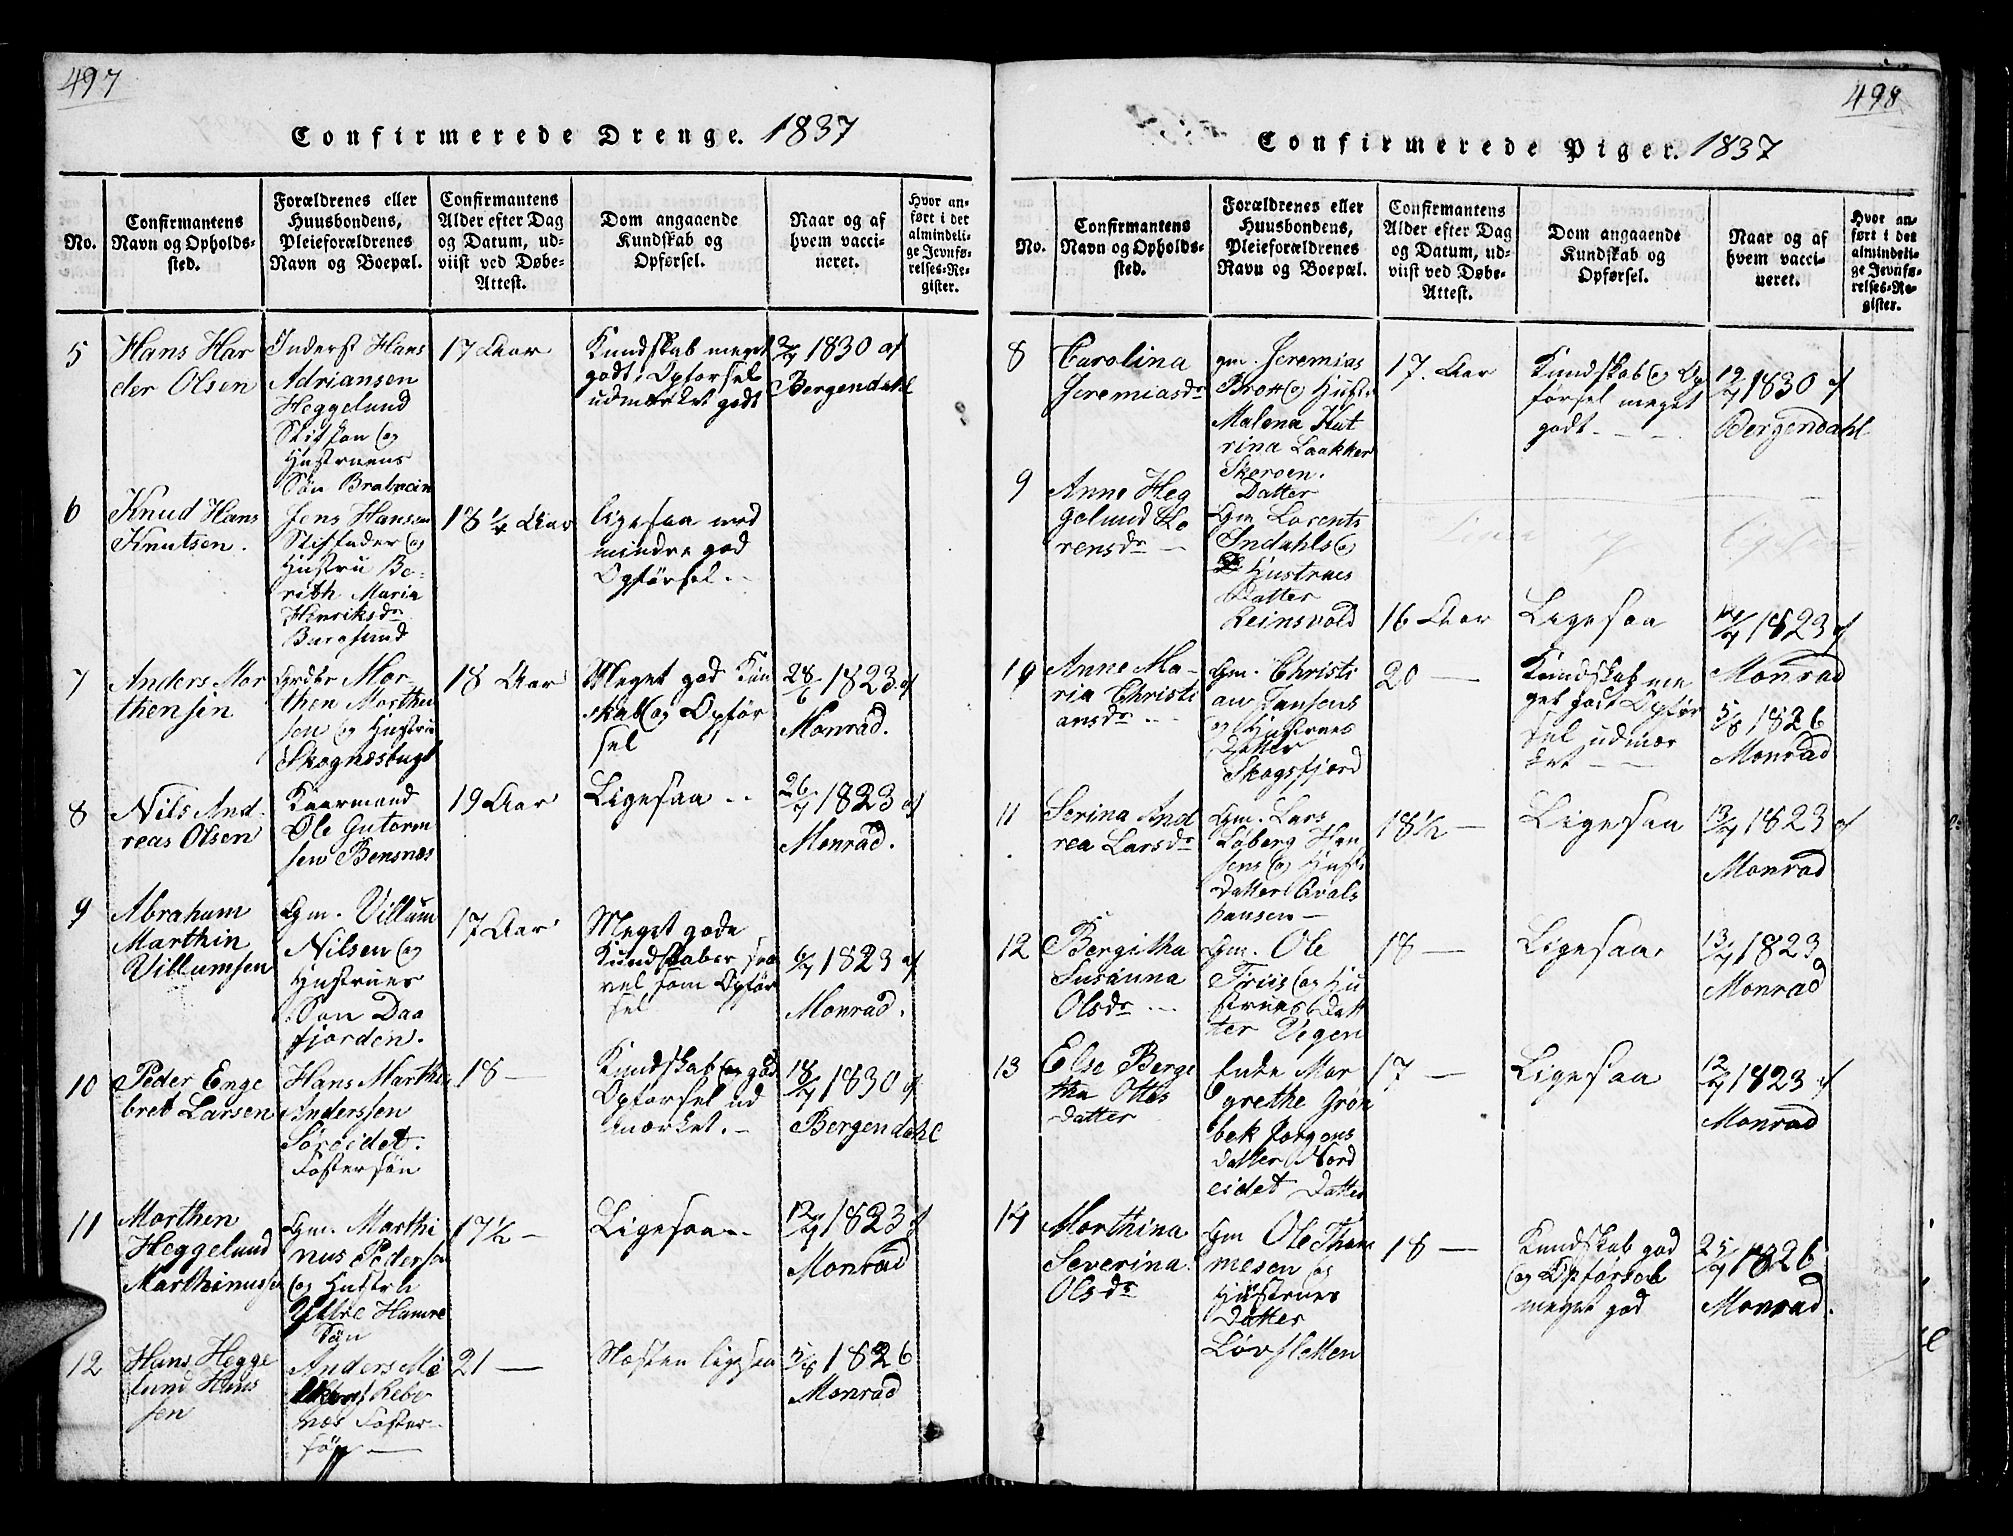 497
Confirmerede Drenge. 1837
No.
Confirmantens
Navn og Opholds-
sted.
Forældrenes eller
Huusbondens,
Pleieforældrenes
Navn og Boepæl.
Confirmantens
Alder efter Dag
og Datum, ud-
viist ved Døbe-
Attest.
Dom angaaende
Kundskab og
Opførsel.
Naar og af
hvem vacci-
neret.
Hvor an-
ført i det
almindeli-
ge Jevnfø-
relses-Re-
gister.
5
Hans Har
der Olsen
Inderst Hans
Adriansen
Heggelund
Stifson og
Hustruens
Søn
17 Aar
Kundskab meget
godt, Opførsel
udmærket godt
2/7 1830 af
Bergendahl
6
Knud Hans
Knutsen.
Jens Hansen
Stiffader og
Hustru Be-
rith Maria
Henriksdr
Burøsund
18 1/4 Aar
ligesaa med
mindre god
Opførsel..
7
Anders Mor
thensen
Grdbr Mor-
then Morthen
sen og Hustru
Skognæsbugt
18 Aar
Meget god Kun
skab og Opfør
sel
28/6 1823 af
Monrad.
8
Nils And-
reas Olsen
Kaarmand
Ole Gutorm
sen Bensnæs
19 Aar
Ligesaa ..
26/7 1823 af
Monrad.
9
Abraham
Marthin
Villumsen
Gm. Villum
Nilsen og
Hustrues
Søn Daa
fjorden.
17 Aar
Meget gode
Kundskaber saa
vel som Opfør
sel
6/7 1823 af
Monrad.
10
Peder Enge
bret Larsen
Hans Marthin
Anderssen
Søreidet.
Fostersøn
18 —
Kundskab og god
Opførsel ud
mærket. —
18/7 1830 af
Bergendahl
11
Morthen
Heggelund
Marthinusen
Gm. Marthi
nus Pedersen
og Hustru
Yttre Hamre
Søn
17 1/2 —
Ligesaa..
12/7 1823 af
Monrad
12
Hans Hegge
lund Hans
sen
Anders
Rebe
næs Foster-
søn —
21 —
Næsten ligesaa
5/8 1826
Monrad
498
Confirmerede Piger. 1837
No.
Confirmantens
Navn og Opholds-
sted.
Forældrenes eller
Huusbondens,
Pleieforældrenes
Navn og Boepæl.
Confirmantens
Alder efter Dag
og Datum, ud-
viist ved Døbe-
Attest.
Dom angaaende
Kundskab og
Opførsel.
Naar og af
hvem vacci-
neret.
Hvor an-
ført i det
almindeli-
ge Jevnfø-
relses-Re-
gister.
8
Carolina
Jeremiasdr
gm. Jeremias
Brox og Hustru
Malena Kat
rina Laakker
Skaroen.
Datter
17. Aar
Kundskab og Op
førsel meget
godt. —
19/7 1830 af
Bergendahl
9
Anne Heg
gelund Lo
rensdr —
Gm Lorents
Indahls og
Hustrues
Datter
Reinsvold
16 Aar
Ligesaa
12/7 1823 af
Monrad
10
Anne Ma-
ria Christi
ansdr ..
Gm. Christi
an Hansens
og Hustrues
Datter
Skogsfjord
20 —
Kundskab me
get godt Opfør
sel udmær
ket —
5/8 1826
Monrad
11
Serina And
rea Larsdr
Gm. Lars
Løberg Han
sens og Hust.
Datter Qvals
hausen —
18 1/2 —
Ligesaa
13/7 1823 af
Monrad
12
Bergitha
Susanna
Olsdr ...
Gm. Ole
Friis og Hu
strues Dat
ter Vegen
18 —
Ligesaa.
13/7 1823
Monrad
13
Else Berge
tha Ottes
datter
Enke Mar
grethe Grøn
bek Jørgens
datter Nord
eidet Datter
17 —
Ligesaa
12/7 1823 af
Monrad
14
Morthina
Severina
Olsdr
Gm Ole Thom
mesen og
Hustrues
Datter
Løvsletten
18 —
Kundskab god
og Opførsel
meget god
25/7 1826
Monrad.